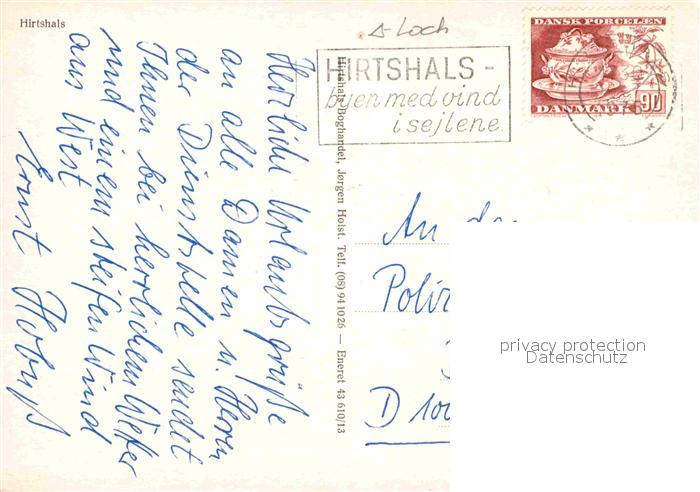 Hirtshals
Δ-Loch
HIRTSHALS -
byen med vind
i sejlene
DANSK PORCELÆN
DANMARK 90
Herzliche Urlaubsgrüße
an alle Damen u. Herren
der Dienststelle sendet
Ihnen bei herrlichem Wetter
und einem steifen Wind
aus West
Ernst
Hirtshals Boghandel, Jørgen Holst. Telf. (08) 941026 — Eneret 43 610/13
An
D 100
privacy protection
Datenschutz